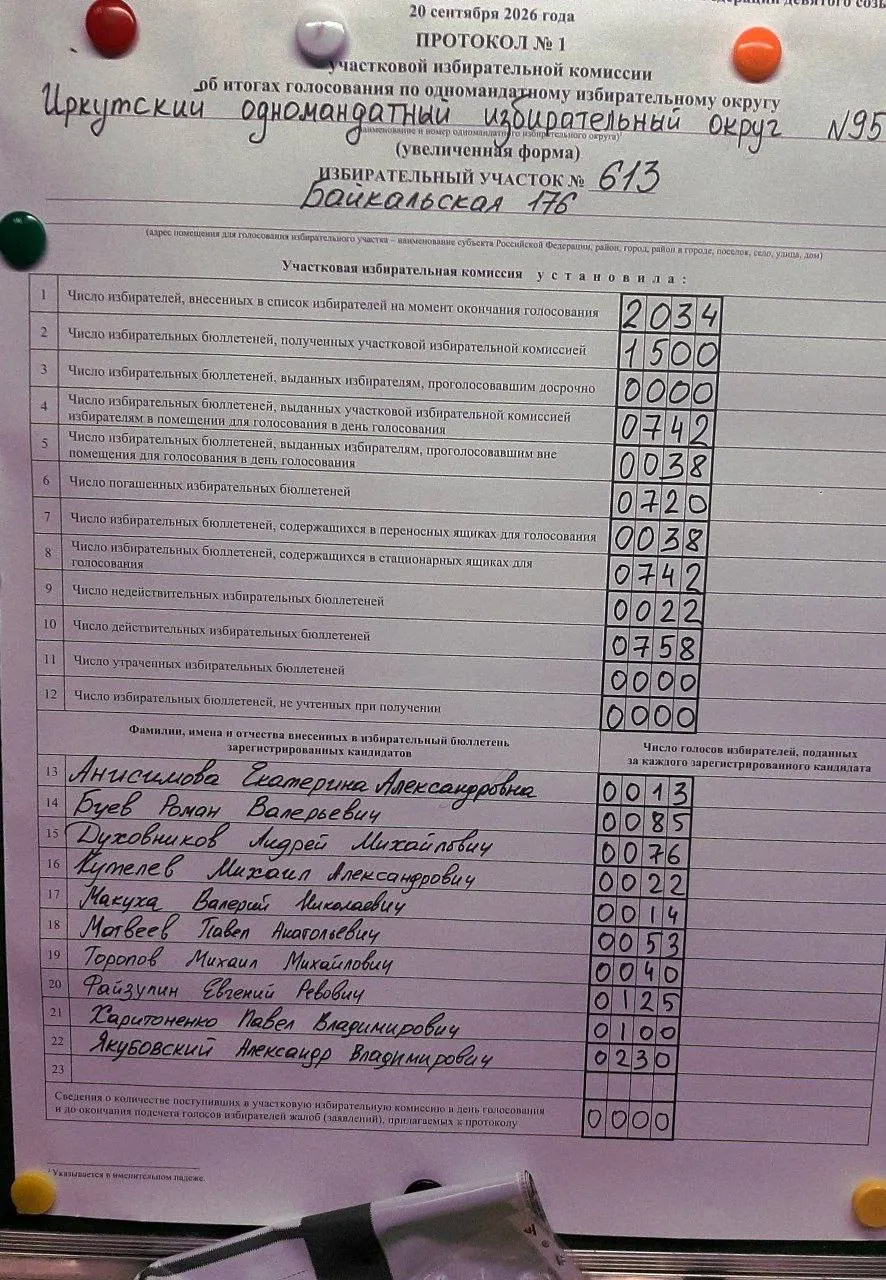 дерации девятого созы
20 сентября 2026 года
ПРОТОКОЛ № 1
участковой избирательной комиссии
об итогах голосования по одномандатному избирательному округу
Иркутский одномандатный избирательный округ N95
(наименование и номер одномандатного избирательного округа)¹
(увеличенная форма)
ИЗБИРАТЕЛЬНЫЙ УЧАСТОК № 613
Байкальская 176
(адрес помещения для голосования избирательного участка – наименование субъекта Российской Федерации, район, город, район в городе, поселок, село, улица, дом)
Участковая избирательная комиссия установила:
1 Число избирателей, внесенных в список избирателей на момент окончания голосования 2034
2 Число избирательных бюллетеней, полученных участковой избирательной комиссией 1500
3 Число избирательных бюллетеней, выданных избирателям, проголосовавшим досрочно 0000
4 Число избирательных бюллетеней, выданных участковой избирательной комиссией
избирателям в помещении для голосования в день голосования 0742
5 Число избирательных бюллетеней, выданных избирателям, проголосовавшим вне
помещения для голосования в день голосования 0038
6 Число погашенных избирательных бюллетеней 0720
7 Число избирательных бюллетеней, содержащихся в переносных ящиках для голосования 0038
8 Число избирательных бюллетеней, содержащихся в стационарных ящиках для
голосования 0742
9 Число недействительных избирательных бюллетеней 0022
10 Число действительных избирательных бюллетеней 0758
11 Число утраченных избирательных бюллетеней 0000
12 Число избирательных бюллетеней, не учтенных при получении 0000
Фамилии, имена и отчества внесенных в избирательный бюллетень
зарегистрированных кандидатов
Число голосов избирателей, поданных
за каждого зарегистрированного кандидата
13 Анисимова Екатерина Александровна 0013
14 Буев Роман Валерьевич 0085
15 Духовников Андрей Михайлович 0076
16 Кутелев Михаил Александрович 0022
17 Макуха Валерий Николаевич 0014
18 Матвеев Павел Анатольевич 0053
19 Торопов Михаил Михайлович 0040
20 Файзулин Евгений Ревович 0125
21 Харитоненко Павел Владимирович 0100
22 Якубовский Александр Владимирович 0230
23
Сведения о количестве поступивших в участковую избирательную комиссию в день голосования
и до окончания подсчета голосов избирателей жалоб (заявлений), прилагаемых к протоколу 0000
¹ Указывается в именительном падеже.